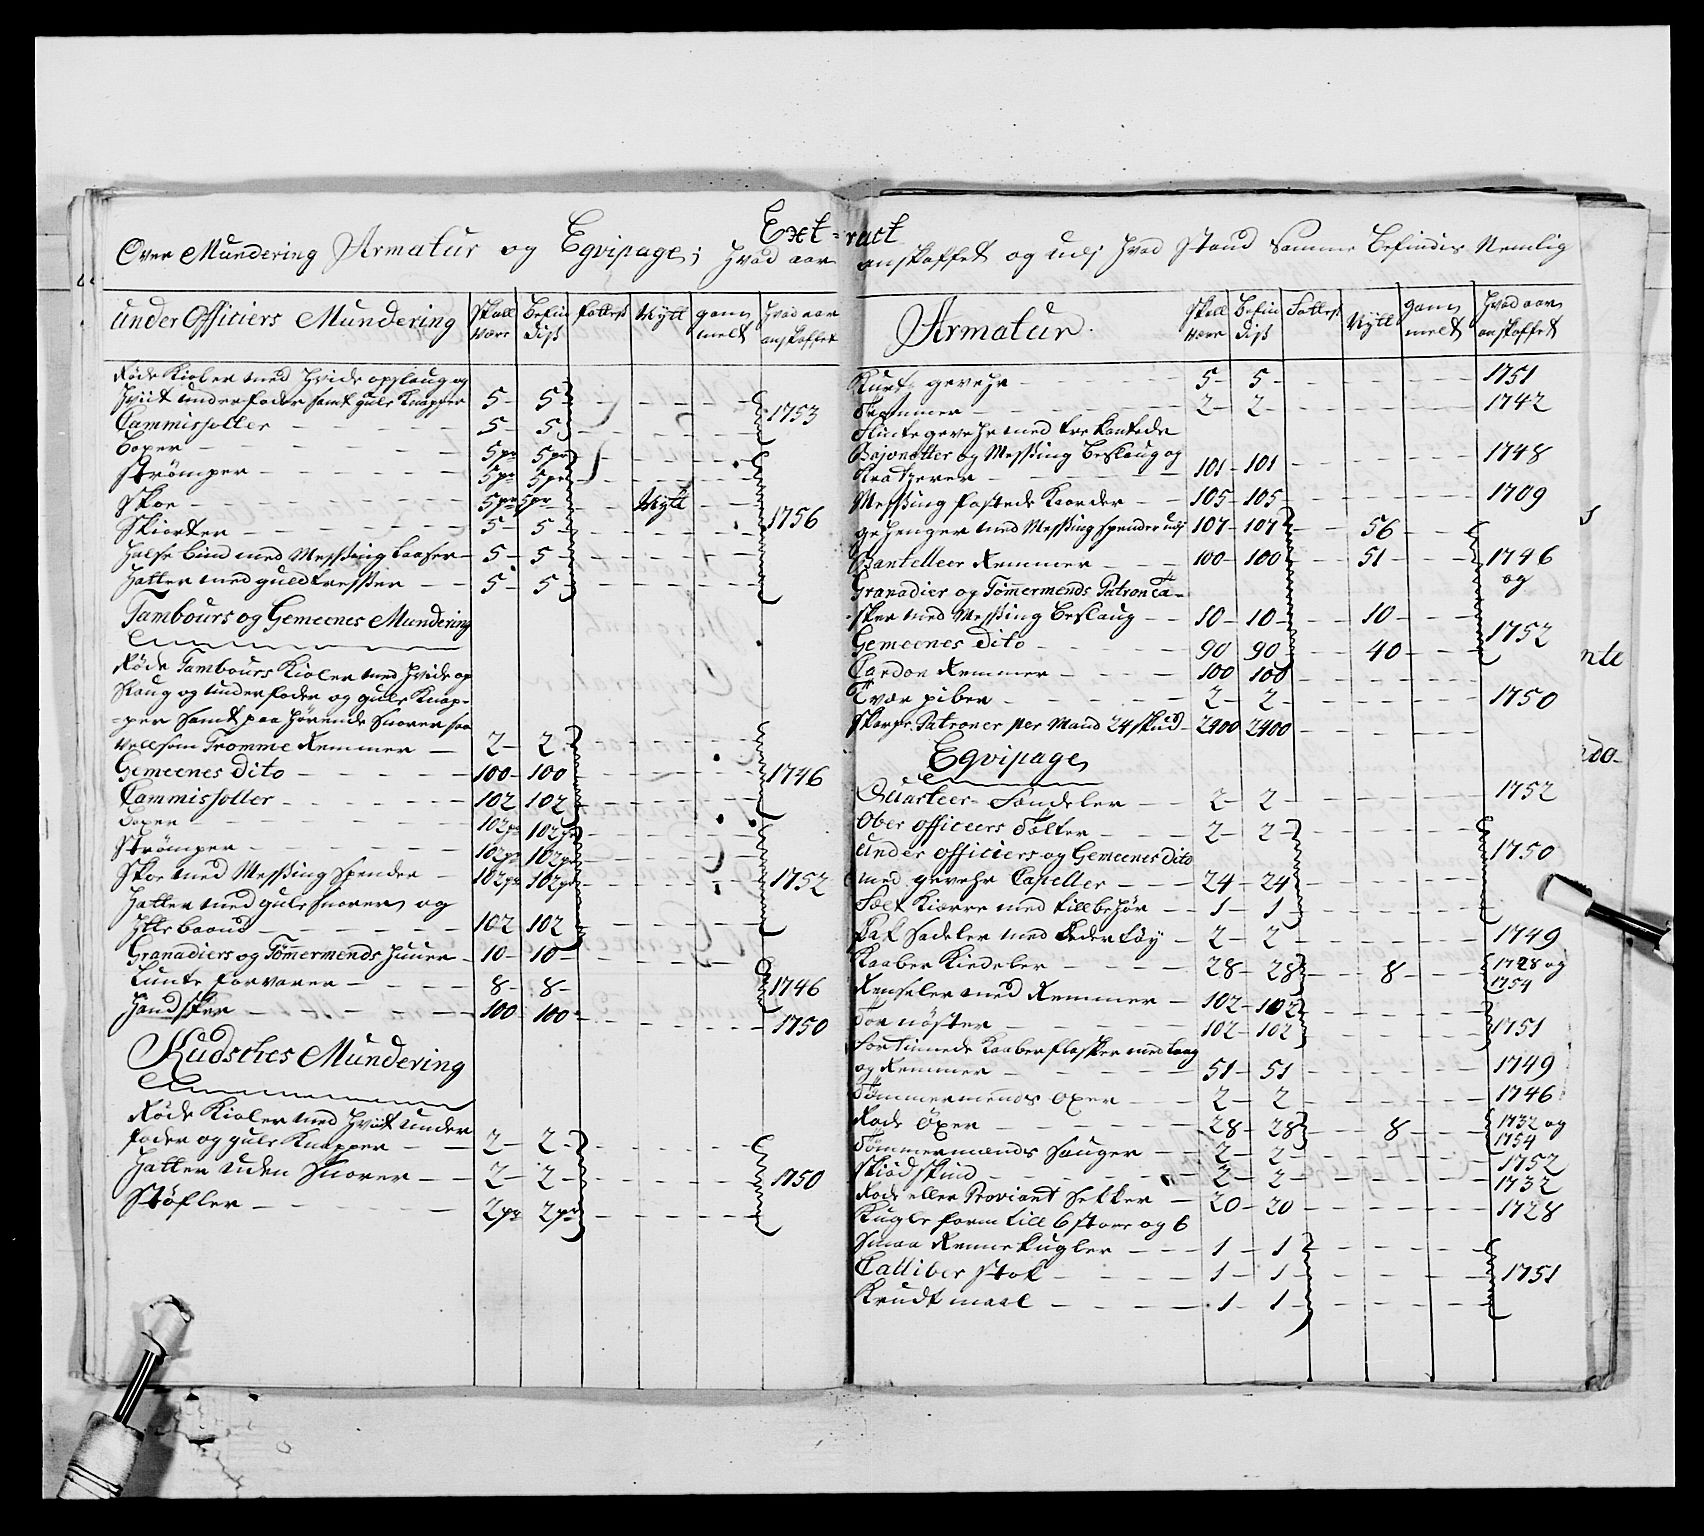 Ext=ract
Over Mundering Armatur og Egvipage; hvad aar anskaffet og udj hvad Stand Samme befindis Nemlig
under Officiers Mundering Skall være Befin diß fattes Nytt gam melt hvad aar anskaffet
Røde Kioler med hvide opslaug og
hviit underfoder samt gule Knapper 5 - 5 -
Cammisoller - 5 - 5 - 1753
Boxer - 5 pr 5 pr
Strømper - 5 pr 5 pr
Skoe - 5 pr 5 pr Nytt
Skiorter - 5 - 5 - 1756
Halse bind med Messing laaser - 5 - 5 -
Hatter med guld tresser - 5 - 5 -
Tambours og Gemeenes Mundering
Røde Tambours Kioler med hvide op
slaug og underfoder og gule Knap-
-per samt paa hørende Snorer saa
vell som Tromme Remmer - 2 - 2 -
Gemeenes dito - 100 - 100 1746
Cammisoller - 102 102
Boxer - 102 pr 102 pr
Strømper - 102 pr 102 pr
Skoe med Messing Spender - 102 pr 102 pr 1752
Hatter med gule snorer og
baand - 102 102
Granadiers og Tømermends Huuer - 10 - 10 -
Lunte forvarer - 8 - 8 - 1746
Handsker - 100 100 1750
Kudsches Mundering
Røde Kioler med hviit under
foder og gule Knapper - 2 - 2 -
Hatter uden Snorer - 2 - 2 - 1750
Støfler - 2 pr 2 pr
Armatur. Skall være Befin diß Fattes Nytt gam melt hvad aar anskaffet
Kurtz gevehr - 5 - 5 - 1751
Trommer - 2 - 2 - 1742
Flinte gevehr med tre kantede
Bajonetter og Messing Beslaug og
Kratzerer - 101 - 101 - 1748
Messing fastede Kaarder - 105 - 105 - 1709
gehenger med Messing spender udj 107 - 107 56 -
Bantelleer Remmer - 100 - 100 51 - 1746
og
Granadier og Tømermends Patron Ta-
sker med Messing Beslaug - 10 - 10 - 10 -
1752
Gemeenes dito - 90 90 40 -
Cardon Remmer - 100 100
Tvær piber - 2 - 2 - 1750
Skarpe Patroner per Mand 24 skud - 2400 2400
Egvipage
Quarteer Fandeler - 2 - 2 - 1752
Ober officeers Tælter - 2 - 2 -
under officiers og Gemeenes dito 1750
med gevehr Capeller - 24 - 24 -
Fælt Kiærre med tillbehør - 1 - 1 -
Pak Sadeler med Leder tøy - 2 - 2 - 1749
Kaaber Kiedeler - 28 - 28 8 - 1728 og 1754
Rensseler med Remmer - 102 - 102
Tornøster - 102 - 102 1751
Fortinnede Kaaber flasker med laag
og Remmer - 51 - 51 1749
Tømmermends oxer - 2 - 2 - 1746
Rode Øxer - 28 - 28 8 - 1732 og 1754
Tømmermænds Sauger - 2 - 2 - 1752
Skiødskind - 2 - 2 - 1732
Rode eller Proviant Sekker - 20 - 20 - 1728
Kugle form till 6 store og 6
Smaa Renne kugler - 1 - 1 -
Calliber Stok - 1 - 1 - 1751
Krudt maal - 1 - 1 -